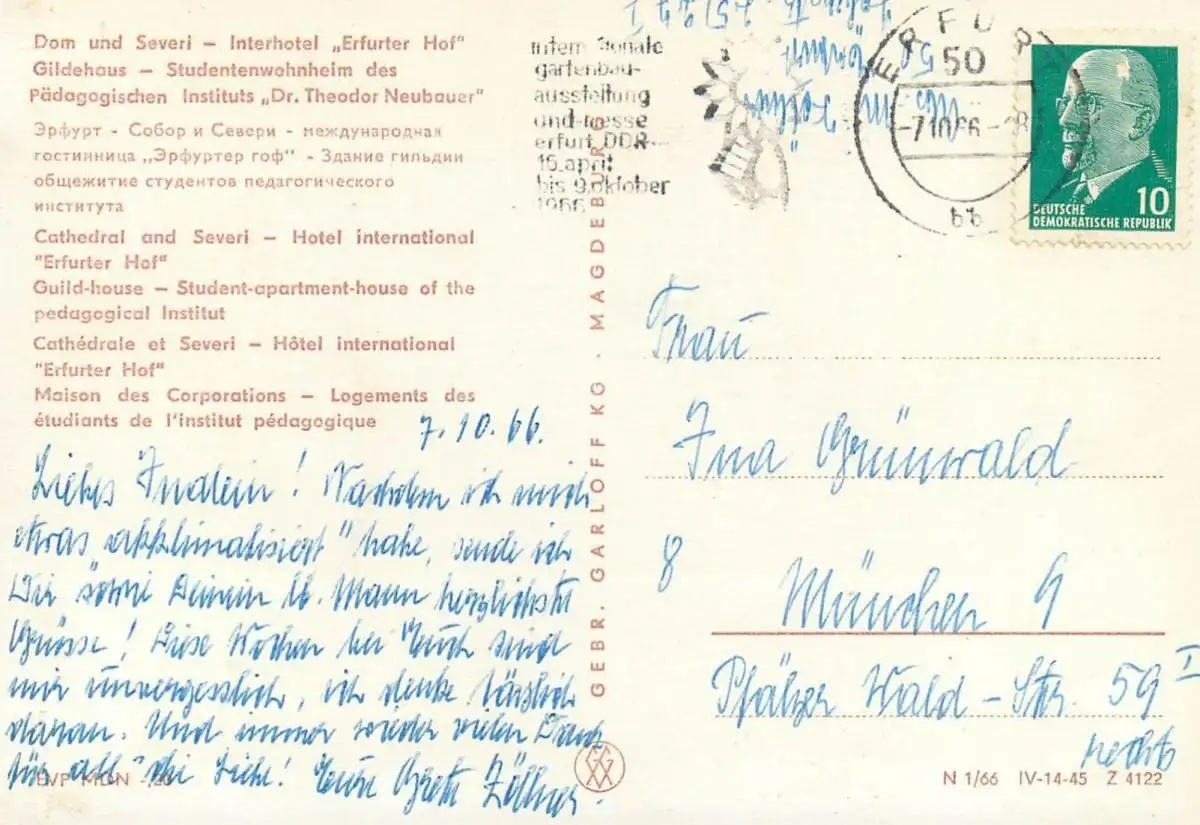 Dom und Severi – Interhotel „Erfurter Hof"
Gildehaus – Studentenwohnheim des
Pädagogischen Instituts „Dr. Theodor Neubauer"
Эрфурт - Собор и Севери - международная
гостинница „Эрфуртер гоф" - Здание гильдии
общежитие студентов педагогического
института
Cathedral and Severi – Hotel international
"Erfurter Hof"
Guild-house – Student-apartment-house of the
pedagogical Institut
Cathédrale et Severi – Hôtel international
"Erfurter Hof"
Maison des Corporations – Logements des
étudiants de l'institut pédagogique
7.10.66.
Liebes Inalein! Nachdem ich mich
etwas „akklimatisiert" habe, sende ich
Dir sowie Deinem lb. Mann herzlichste
Grüsse! Diese Wochen bei Euch sind
mir unvergesslich, ich denke täglich
daran. Und immer wieder vielen Dank
für all die Liebe! Eure Grete Zöllner.
EVP MDN -,20
GEBR. GARLOFF KG. MAGDEBURG
internationale
gartenbau-
ausstellung
und-messe
erfurt DDR
15.april
bis 9.oktober
1966
ERFURT
50
-7.10.66-
bb
DEUTSCHE
DEMOKRATISCHE REPUBLIK
10
Frau
Ina Grünwald
8 München 9
Pfälzer Wald-Str. 59 I
rechts
N 1/66 IV-14-45 Z 4122